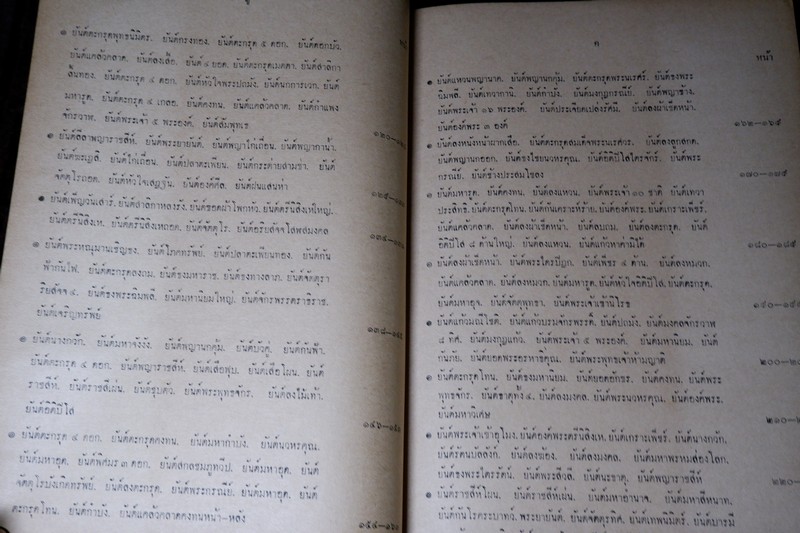 ๑ ยันต์ตะกรุดพุทธนิมิตร. ยันต์ทรงทอง. ยันต์ตะกรุด ๕ ดอก. ยันต์ดอกบัว.
ยันต์แคล้วคลาด. ยันต์ลงเสื้อ. ยันต์ ๔ ยอด. ยันต์ตะกรุดเมตตา. ยันต์สาลิกา
ลิ้นทอง. ยันต์ตะกรุด ๔ ดอก. ยันต์หัวใจพระปถมัง. ยันต์นกการเวก. ยันต์
มหารูด. ยันต์ตะกรุด ๔ เกลอ. ยันต์คงทน. ยันต์แคล้วคลาด. ยันต์กำแพง
จักรวาฬ. ยันต์พระเจ้า ๕ พระองค์. ยันต์สัมพุทเธ
๑๒๐—๑๒๔
๑ ยันต์สีลาพญาราชสีห์. ยันต์พระยายันต์. ยันต์พญาไก่เถื่อน. ยันต์พญากาน้ำ.
ยันต์ไก่เถื่อน. ยันต์ปลาตะเพียน. ยันต์กระต่ายสามขา. ยันต์
จัตตุโรถอด. ยันต์หัวใจเสฏฐัน. ยันต์องค์ศีล. ยันต์ฝนแสนห่า
๑ ยันต์เพ็ญวนเสาร์. ยันต์สาลิกาหลงรัง. ยันต์ยอดผ้าโพกหัว. ยันต์ตรีนิสิงเหใหญ่.
ยันต์ตรีนิสิงเห. ยันต์ตรีนิสิงเหถอด. ยันต์จัตตุโร. ยันต์อริยสัจจโสฬสมงคล
๑ ยันต์พระหณุมานเชิญธง. ยันต์โภคทรัพย์. ยันต์ปลาตะเพียนทอง. ยันต์กัน
ฟ้ากันไฟ. ยันต์ตะกรุดลงถม. ยันต์ธงมหาราช. ยันต์ธงทางลาภ. ยันต์จัตุรา
ริยสัจจ ๔. ยันต์ธงพระฉิมพลี. ยันต์มหานิยมใหญ่. ยันต์จักรพรรดิราชาธิราช.
ยันต์เจริญทรัพย์
๑ ยันต์นางกวัก. ยันต์มหาจังงัง. ยันต์พญานกคุ้ม. ยันต์บัวคู่. ยันต์กันฟ้า.
ยันต์ตะกรุด ๔ ดอก. ยันต์พญาราชสีห์. ยันต์เสือหุบ. ยันต์เสือโผน. ยันต์
ราชสีห์. ยันต์ราชสีเผ่น. ยันต์ชูบตัว. ยันต์พระพุทธจักร. ยันต์ลงไม้เท้า.
ยันต์อิติปิโส
๑ ยันต์ตะกรุด ๔ ดอก. ยันต์ตะกรุดคงทน. ยันต์มหากำบัง. ยันต์นวหรคุณ.
ยันต์มหาอุด. ยันต์พิศมร ๓ ดอก. ยันต์สกลชมภูทวีป. ยันต์มหาอุด. ยันต์
จัตตุโรบังเกิดทรัพย์. ยันต์ลงตะกรุด. ยันต์พระกรณีย์. ยันต์มหาอุด. ยันต์
ตะกรุดโทน. ยันต์กำบัง. ยันต์แคล้วคลาดคงทนหน้า-หลัง
ค
หน้า
๑ ยันต์แหวนพญานาค. ยันต์พญานกคุ้ม. ยันต์ตะกรุดพระนเรศร์. ยันต์ธงพระ
ฉิมพลี. ยันต์เทวากาน. ยันต์กำบัง. ยันต์มงกุฎกรณีย์. ยันต์พญาช้าง.
ยันต์พระเจ้า ๑๖ พระองค์. ยันต์ประเจียดแปลงรัศมี. ยันต์ลงผ้าเช็ดหน้า.
ยันต์องค์พระ ๓ องค์
๑๖๒—๑๖๕
๑ ยันต์ลงหนังหน้าผากเสือ. ยันต์ตะกรุดสมเด็จพระนเรศวร. ยันต์ลงลูกสกด.
ยันต์พญานกออก. ยันต์ธงไชยนวหรคุณ. ยันต์อิติปิโสไตรจักร์. ยันต์พระ
กรณีย์. ยันต์ช้างประสมโขลง
๑๗๐—๑๗๕
๑ ยันต์มหารูด. ยันต์คงทน. ยันต์ลงแหวน. ยันต์พระเจ้า ๑๐ ชาติ. ยันต์เทวา
ประสิทธิ. ยันต์ตะกรุดโทน. ยันต์กันเคราะห์ร้าย. ยันต์องค์พระ. ยันต์เกราะเพ็ชร์.
ยันต์แคล้วคลาด. ยันต์ลงผ้าเช็ดหน้า. ยันต์ลบถม. ยันต์ลงตะกรุด. ยันต์
อิติปิโส ๘ ด้านใหญ่. ยันต์ลงแหวน. ยันต์แก้วห้ามิได้
๑๘๐—๑๘๕
๑ ยันต์ลงผ้าเช็ดหน้า. ยันต์พระไตรปิฎก. ยันต์เพ็ชร ๔ ด้าน. ยันต์ลงหมวก.
ยันต์แคล้วคลาด. ยันต์ลงหมวก. ยันต์มหารูด. ยันต์หัวใจอิติปิโส. ยันต์ตะกรุด.
ยันต์มหาอุจ. ยันต์จัตตุพุทธา. ยันต์พระเจ้าเข้านิโรธ
๑ ยันต์แก้วมณีโชติ. ยันต์แก้วบรมจักรพรรดิ์. ยันต์ปถมัง. ยันต์มงคลจักรวาฬ
๘ ทิศ. ยันต์มงกุฎแก้ว. ยันต์พระเจ้า ๕ พระองค์. ยันต์มหานิยม. ยันต์
กันภัย. ยันต์ยอดพระอรหาธิคุณ. ยันต์พระพุทธเจ้าห้ามญาติ
๑ ยันต์ตะกรุดโทน. ยันต์ธงมหานิยม. ยันต์ยอดยักษ์. ยันต์คงทน. ยันต์พระ
พุทธจักร. ยันต์ธาตุทั้ง ๔. ยันต์ลงมงคล. ยันต์พระนวหรคุณ. ยันต์องค์พระ.
ยันต์มหาวิเศษ
๑ ยันต์พระเจ้าเข้าอุโมง. ยันต์องค์พระตรีนิสิงเห. ยันต์เกราะเพ็ชร์. ยันต์นางกวัก.
ยันต์รัตนบัลลังก์. ยันต์ลงฆ้อง. ยันต์ลงมงคล. ยันต์มหาพรหมสองโลก.
ยันต์ธงพระไตรรัตน์. ยันต์พระสีวลี. ยันต์นะธาตุ. ยันต์พญาราชสีห์
๑ ยันต์ราชสีห์โผน. ยันต์ราชสีห์เผ่น. ยันต์มหาอำนาจ. ยันต์มหาสีหนาท.
ยันต์กันโจรตระบาทว์. พระยายันต์. ยันต์จัตตุรทิศ. ยันต์เทพนิมิตร์. ยันต์บารมี